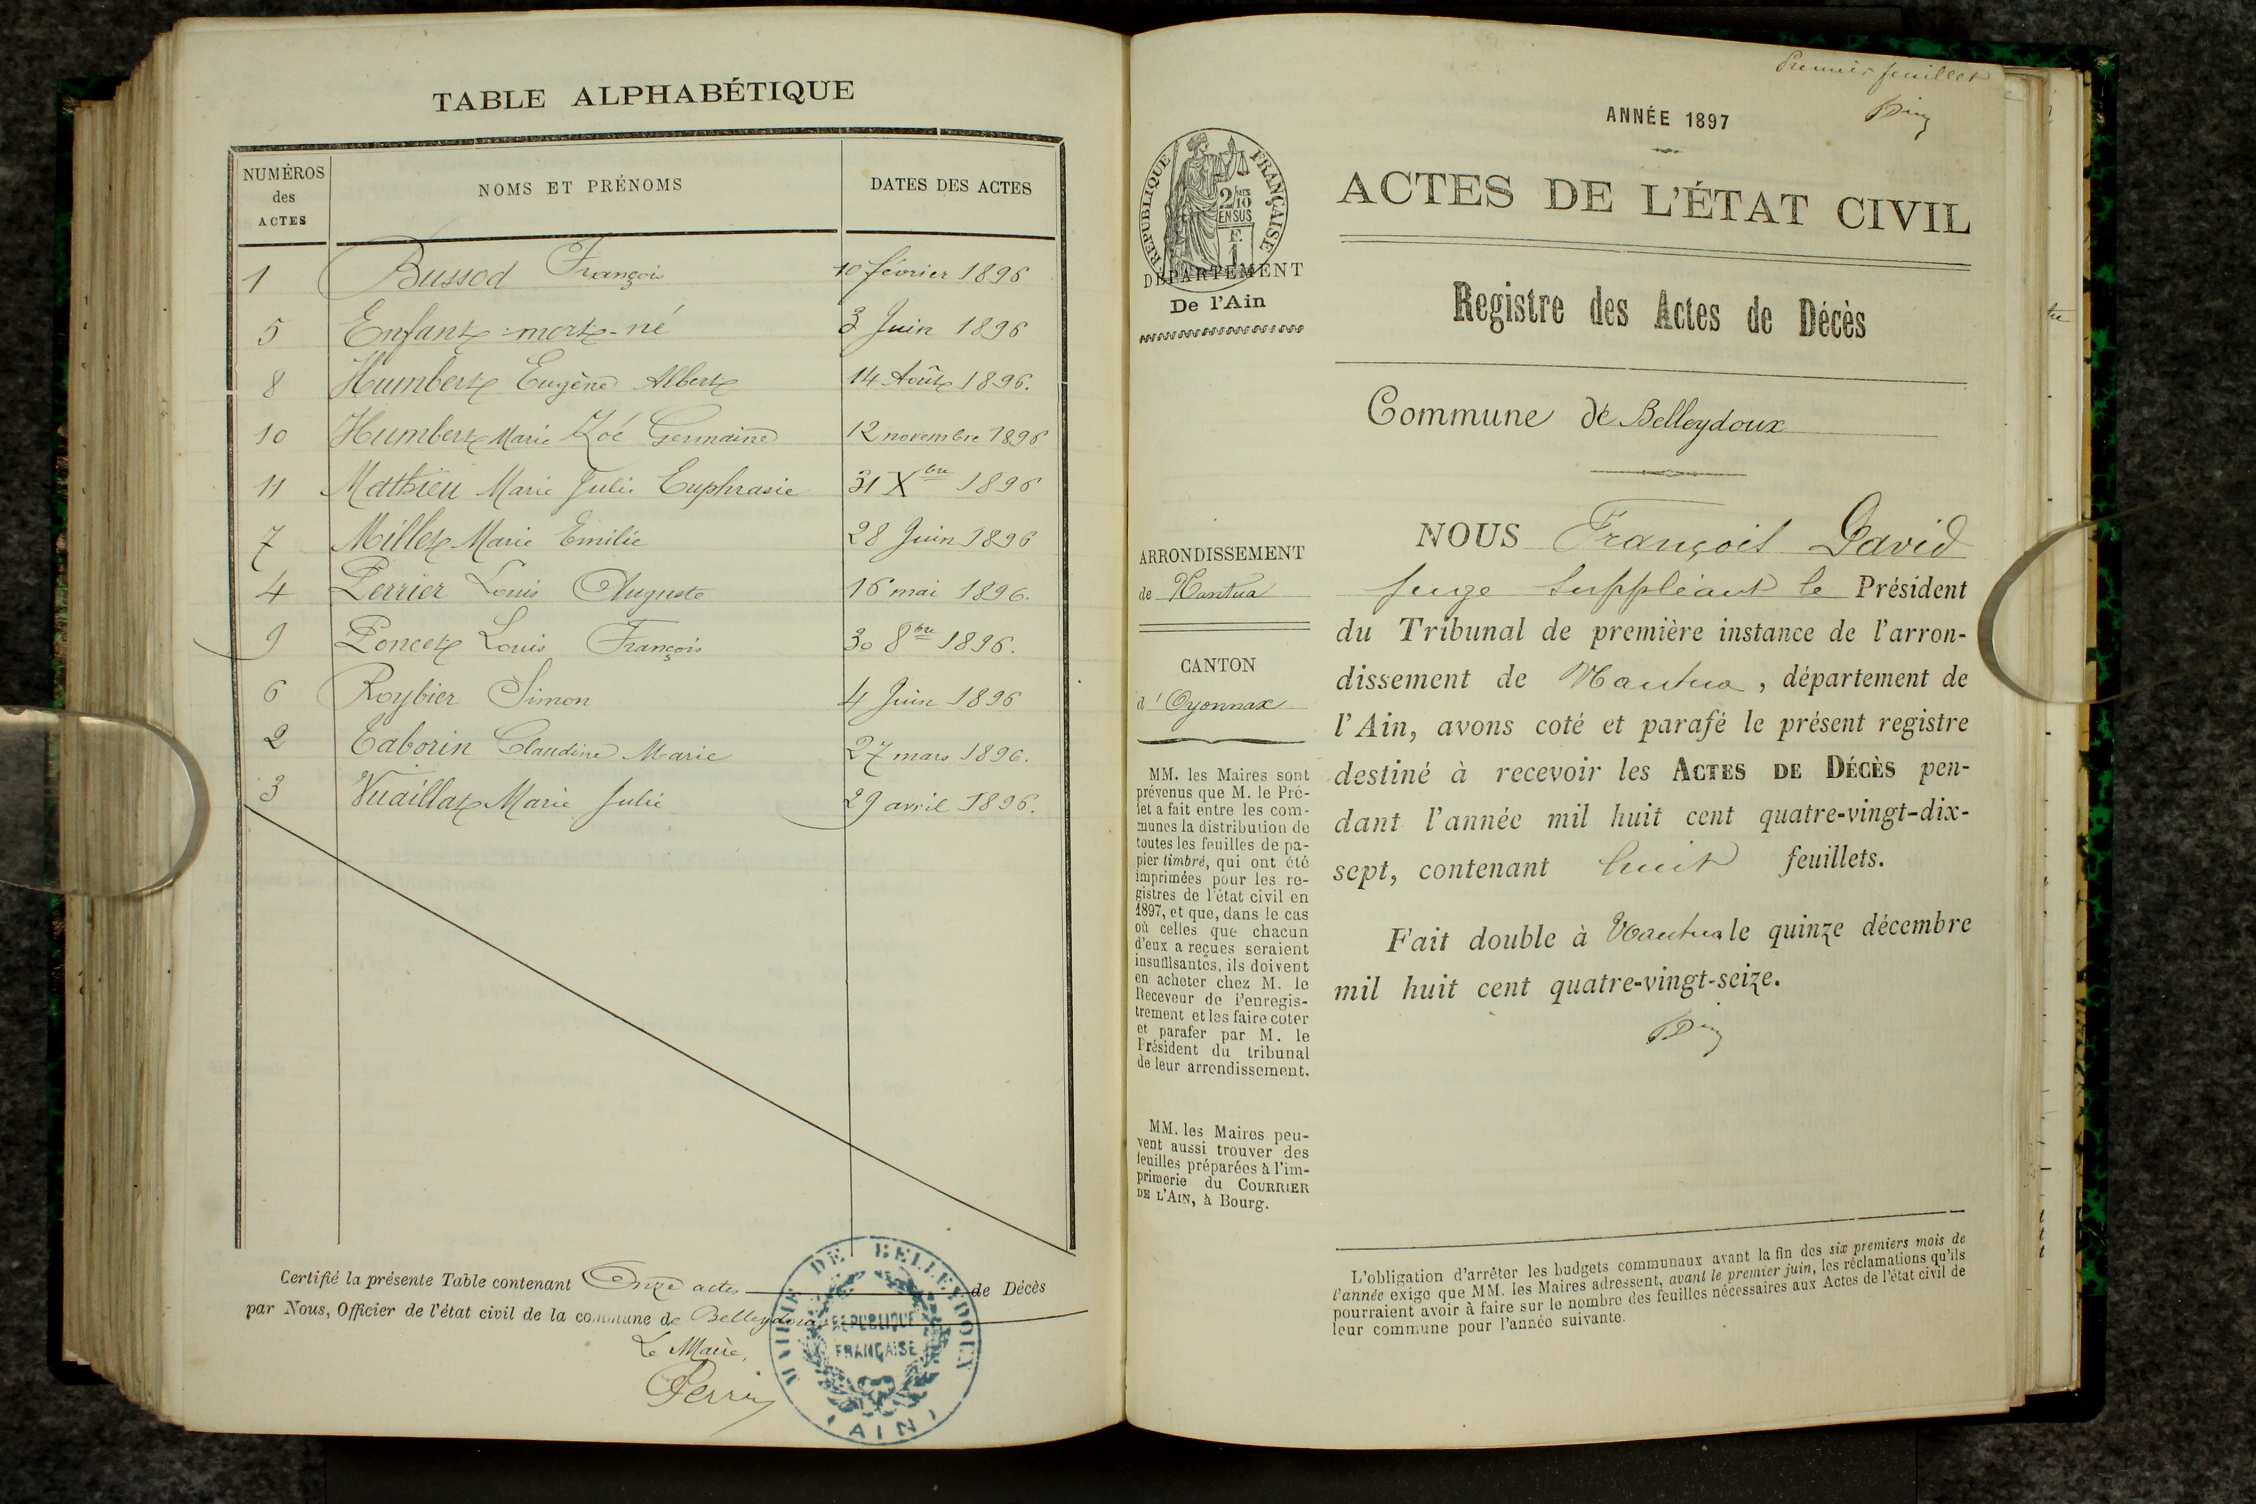 TABLE ALPHABÉTIQUE
NUMÉROS des ACTES NOMS ET PRÉNOMS DATES DES ACTES
1 Bussod François 10 février 1896
5 Enfant mort-né 3 Juin 1896
8 Humbert Eugène Albert 14 Août 1896.
10 Humbert Marie Zoé Germaine 12 novembre 1896
11 Matthieu Marie Julie Euphrasie 31 Xbre 1896
7 Millet Marie Emilie 28 Juin 1896
4 Perrier Louis Auguste 16 mai 1896.
9 Poncet Louis François 30 8bre 1896.
6 Roybier Simon 4 Juin 1896
2 Taborin Claudine Marie 27 mars 1896.
3 Vuaillat Marie Julie 29 avril 1896.
Certifié la présente Table contenant Onze actes de Décès
par Nous, Officier de l'état civil de la commune de Belleydoux
Le Maire,
Perrin
MAIRIE DE BELLEYDOUX
RÉPUBLIQUE
FRANÇAISE
(AIN)
Premier feuillet
ANNÉE 1897
RÉPUBLIQUE FRANÇAISE
2/10
EN SUS
F.
1
DÉPARTEMENT
De l'Ain
ARRONDISSEMENT
de Nantua
CANTON
d'Oyonnax
MM. les Maires sont
prévenus que M. le Pré-
fet a fait entre les com-
munes la distribution de
toutes les feuilles de pa-
pier timbré, qui ont été
imprimées pour les re-
gistres de l'état civil en
1897, et que, dans le cas
où celles que chacun
d'eux a reçues seraient
insuffisantes, ils doivent
en acheter chez M. le
Receveur de l'enregis-
trement et les faire coter
et parafer par M. le
Président du tribunal
de leur arrondissement.
MM. les Maires peu-
vent aussi trouver des
feuilles préparées à l'im-
primerie du COURRIER
DE L'AIN, à Bourg.
ACTES DE L'ÉTAT CIVIL
Registre des Actes de Décès
Commune de Belleydoux
NOUS François David
Juge Suppléant le Président
du Tribunal de première instance de l'arron-
dissement de Nantua, département de
l'Ain, avons coté et parafé le présent registre
destiné à recevoir les ACTES DE DÉCÈS pen-
dant l'année mil huit cent quatre-vingt-dix-
sept, contenant huit feuillets.
Fait double à Nantua le quinze décembre
mil huit cent quatre-vingt-seize.
L'obligation d'arrêter les budgets communaux avant la fin des six premiers mois de
l'année exige que MM. les Maires adressent, avant le premier juin, les réclamations qu'ils
pourraient avoir à faire sur le nombre des feuilles nécessaires aux Actes de l'état civil de
leur commune pour l'année suivante.